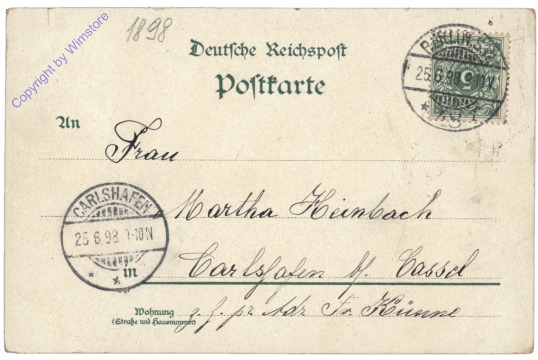 Copyright by Wimstore
1898
Deutsche Reichspost
Postkarte
25.6.98.
5
An
Frau
Martha Heinbach
CARLSHAFEN
25.6.98.9-10N
in
Carlshafen b/ Cassel
Wohnung
(Straße und Hausnummer)
z. f. pr Adr Fr. Künne